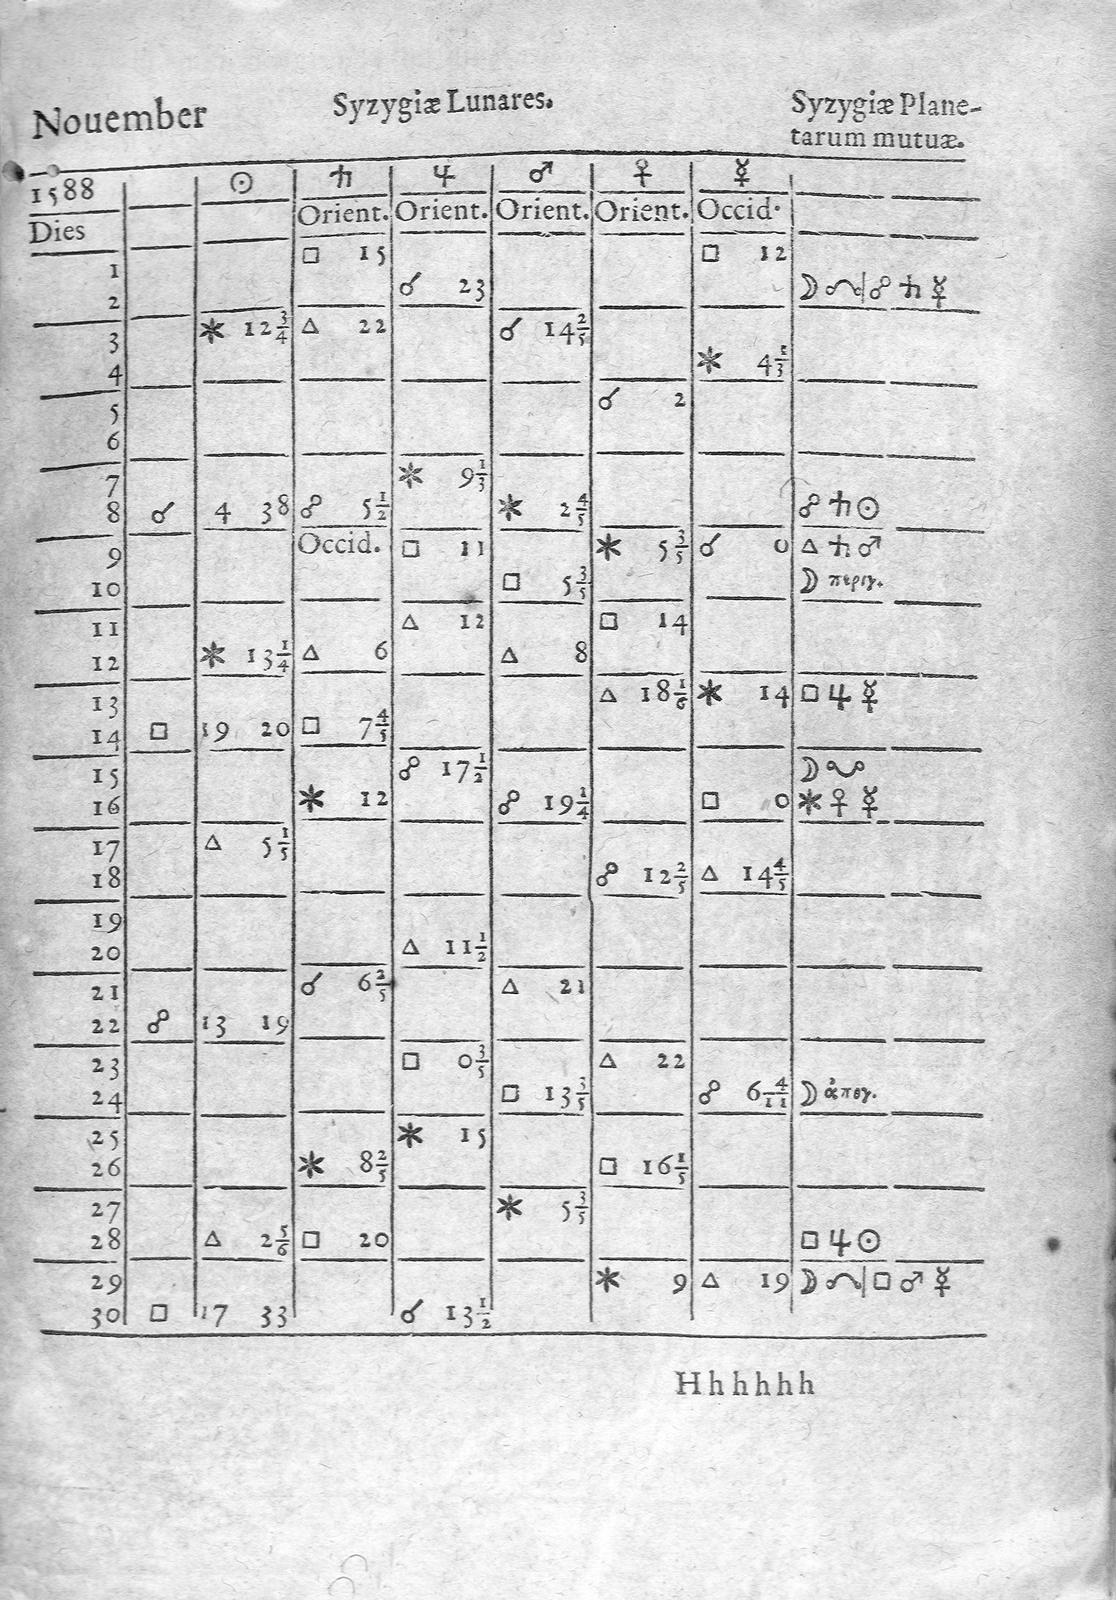 Nouember Syzygiæ Lunares. Syzygiæ Plane-
tarum mutuæ.
1588 ☉ ♄ ♃ ♂ ♀ ☿
Dies Orient. Orient. Orient. Orient. Occid.
1 □ 15 □ 12
2 ☌ 23 ☽ ☊ | ☍ ♄ ☿
3 ✶ 12 3/4 △ 22 ☌ 14 2/5
4 ✶ 4 1/3
5 ☌ 2
6
7 ✶ 9 1/3
8 ☌ 4 38 ☍ 5 1/2 ✶ 2 4/5 ☍ ♄ ☉
9 Occid. □ 11 ✶ 5 3/5 ☌ 0 △ ♄ ♂
10 □ 5 3/5 ☽ περιγ.
11 △ 12 □ 14
12 ✶ 13 1/4 △ 6 △ 8
13 △ 18 1/6 ✶ 14 □ ♃ ☿
14 □ 19 20 □ 7 4/5
15 ☍ 17 1/2 ☽ ☋
16 ✶ 12 ☍ 19 1/4 □ 0 ✶ ♀ ☿
17 △ 5 1/5
18 ☍ 12 2/5 △ 14 4/5
19
20 △ 11 1/2
21 ☌ 6 2/5 △ 21
22 ☍ 13 19
23 □ 0 3/5 △ 22
24 □ 13 3/5 ☍ 6 4/11 ☽ ἀπογ.
25 ✶ 15
26 ✶ 8 2/5 □ 16 1/5
27 ✶ 5 3/5
28 △ 2 5/6 □ 20 □ ♃ ☉
29 ✶ 9 △ 19 ☽ ☊ | □ ♂ ☿
30 □ 17 33 ☌ 13 1/2
Hhhhhh